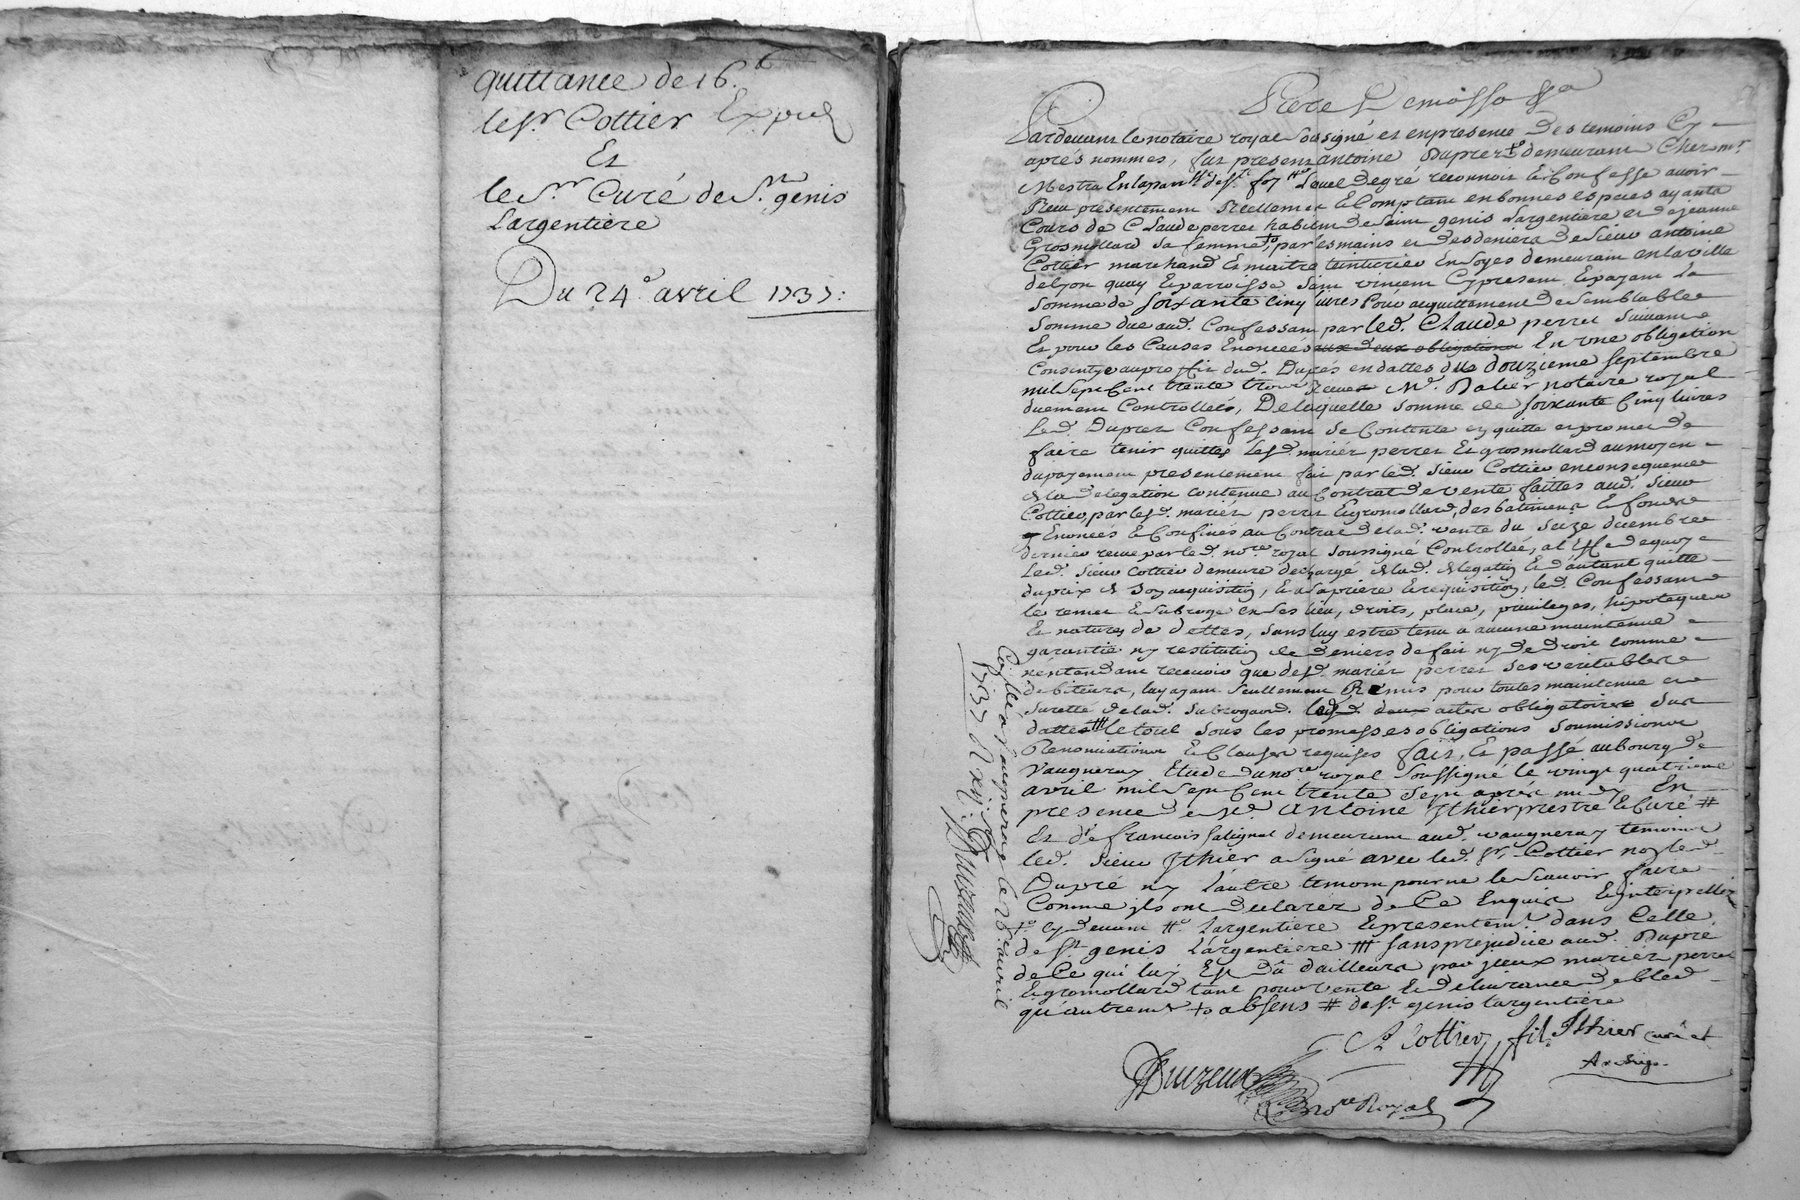 quittance de 16.
le Sr. Cottier
Et
le Sr. Curé de St. genis
Largentière
Du 24e. avril 1737:
Pardevant le notaire royal Sousigné et en presence Des temoins Cy
aprés nommés, fut present antoine Duprez demeurant
de gré reconnoit & Confesse avoir
Receu presentement Réellement & Comptant en bonnes especes ayants
Cours de Claude perret habitant de Saint genis Largentiere et de jeanne
Grosmollard sa femme par les mains et des deniers de Sieur antoine
Cottier marchand & maitre teinturier En Soyes demeurant en la ville
de Lyon quay & parroisse Saint vincent Cy present & payant La
Somme de soixante Cinq livres Pour acquittement de Semblable
Somme due aud. Confessant par led. Claude perret Suivant
Et pour les Causes Enoncées aux deux obligations En une obligation
Consentye au proffit dud. Dupré en datte du douzieme septembre
mil Sept Cent trente trois Receue Me. Dalier notaire royal
duement Controllée, De laquelle somme de soixante Cinq livres
Led. Duprez Confessant Se Contente en quitte et promet de
faire tenir quittes Lesd. mariés perret Et grosmollard au moyen
du payement presentement fait par led. Sieur Cottier en consequence
de la delegation contenue au Contrat de vente faittes aud. Sieur
Cottier, par lesd. mariés perret & grosmollard, des batiments & fonds
Enoncés & Confinés au Contrat de lad. vente du Seize decembre
dernier receue par led. nore. royal soussigné Controllée, a l'effet de quoy
Led. Sieur Cottier demeure dechargé de lad. delegation & d'autant quitte
du prix de son acquisition, & a sa priere & requisition, led. Confessant
le remet & subroge en ses lieu, droits, place, privileges, hipoteques
Et natures de dettes, sans luy estre tenu a aucune maintenue
garantie ny restitution de deniers de fait ny de droit Comme
n'entendant recevoir que desd. mariés perret ses veritables
debiteurs, luy ayant seullement Remis pour toutes maintenue et
surette de lad. subrogaon. led. acte obligatoire Sus
datté ### le tout sous les promesses obligations soumissions
Renonciations & Clauses requises fait, & passé au bourg de
Vaugneray Etude du nore royal Soussigné le vingt quatrieme
avril mil Sept Cent trente Sept aprés midy En
presence de Sr. Antoine Ithier prestre & Curé #
Et de françois Salignat demeurant aud. vaugneray temoins
led. Sieur Ithier a signé avec led. Sr. Cottier non led.
Dupré ny L'autre temoin pour ne le Scavoir faire
Comme ils ont declarez de Ce Enquis & interpellez
cy devant Largentiere & presentemt. dans Celle
de St. genis L'argentiere ### sans prejudice aud. Dupré
de Ce qui luy Est Dû d'ailleurs par iceux mariés perret
& gromollard tant pour vente & delivrance de bled
qu'autremt. + absens # de St. genis largentiere
A Cottier fils Ithier curé et
Archip.
Duizeux
nore Royal
Conllé a Vaugneray le 26e. avril
1737 R xij s.
Duizeux